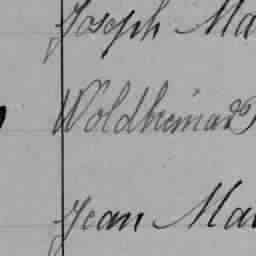 Joseph Ma
Woldheimar
Jean Mar